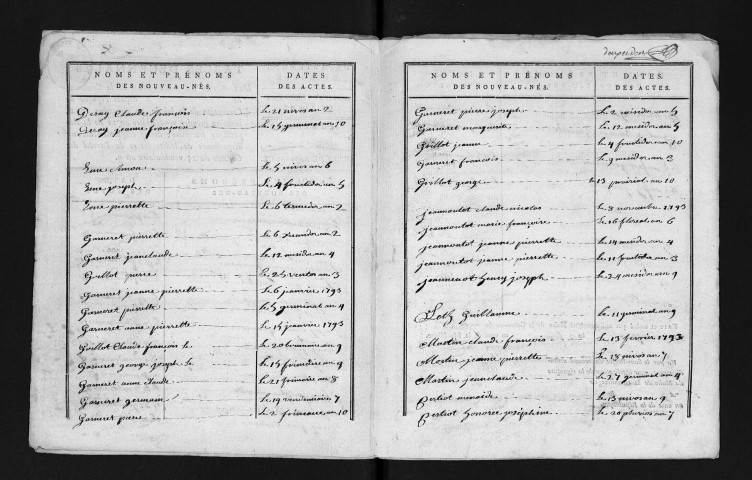 NOMS ET PRÉNOMS
DES NOUVEAU-NÉS.
DATES
DES ACTES.
Deray Claude françois le 21 nivos an 2
Deray jeanne françoise le 15 germinal an 10
le 5 nivos an 6
joseph le 4 fructidor an 5
pierrette le 6 termidor an 2
Garneret pierrette le 6 an 2
Garneret jeanclaude le 12 mesidor an 4
Guillot pierre le 25 vantos an 3
Garneret jeanne pierrette le 6 janvier 1793
Garneret pierrette le 5 germinal an 4
Garneret anne pierrette le 15 janvier 1793
Guillot Claude francois le le 20 brumaire an 9
Garneret george joseph le le 15 frimaire an 9
Garneret anne Claude le 21 frimaire an 8
Garneret germain le 19 vendemiaire 7
Garneret pierre le 2 frimaire an 10
NOMS ET PRÉNOMS
DES NOUVEAU-NÉS.
DATES
DES ACTES.
Garneret pierre joseph le 2 mesidor an 5
Garneret marguerite le 12 mesidor an 5
Guillot jeanne le 4 fructidor an 10
Garneret francois le 9 mesidor an 3
Guillot george le 13 prairial an 10
jeannoutot claude nicolas le 8 novembre 1793
jeannoutot marie françoise le 16 floreal an 6
jeannoutot jeanne pierrette le 14 mesidor an 4
jeannoutot jeanne pierrette le 11 fructidor an 3
jeannoutot henry joseph le 24 mesidor an 9
Guillaume le 11 germinal an 9
Martin claude françois le 13 fevrier 1793
Martin jeanne pierrette le 18 nivos an 7
Martin jeanclaude le 27 germinal an 4
le 13 nivos an 9
honoree joséphine le 20 pluvios an 7